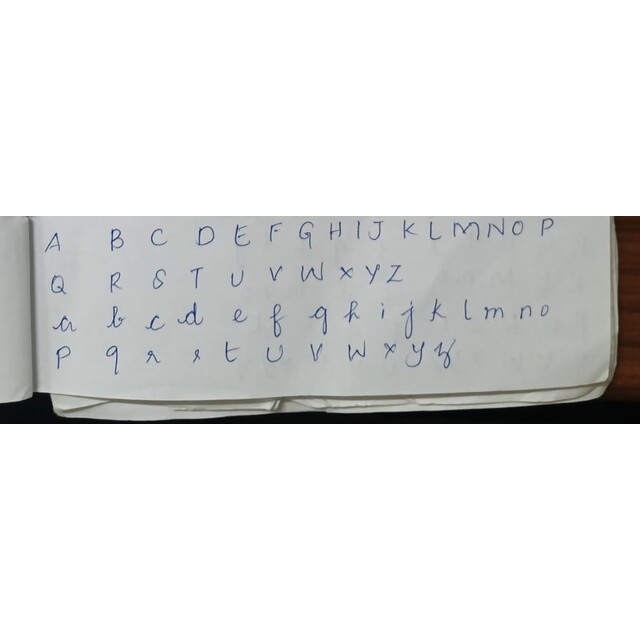 A B C D E F G H I J K L M N O P
Q R S T U V W X Y Z
a b c d e f g h i j k l m n o
p q r s t u v w x y z